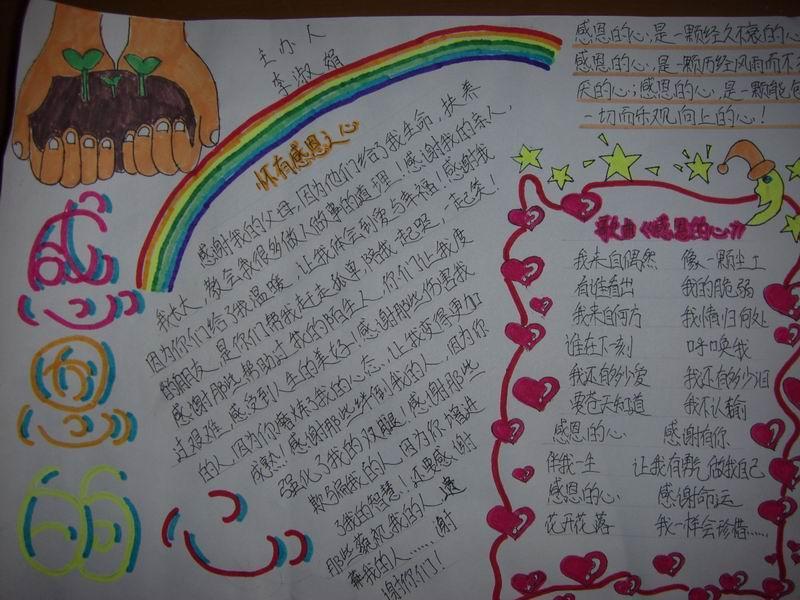 主办人
李淑娟
感恩的心，是一颗经久不衰的心
感恩的心，是一颗历经风雨而不
厌的心；感恩的心，是一颗能包
一切而乐观向上的心！
感
恩
的
心
怀有感恩之心
感谢我的父母，因为他们给了我生命，扶养
我长大，教会我很多做人做事的道理！感谢我的亲人，
因为你们给了我温暖，让我体会到爱与幸福！感谢我
的朋友，是你们帮我赶走孤单，陪我一起哭，一起笑！
感谢那些帮助过我的陌生人，你们让我度
过艰难，感受到人生的美好！感谢那些伤害我
的人，因为你磨炼了我的心态，让我变得更加
成熟！感谢那些绊倒我的人，因为你
强化了我的双腿！感谢那些
欺骗我的人，因为你增进
了我的智慧！还要感谢
那些藐视我的人，遗
弃我的人……谢
谢你们！
歌曲《感恩的心》
我来自偶然 像一颗尘土
有谁看出 我的脆弱
我来自何方 我情归何处
谁在下一刻 呼唤我
我还有多少爱 我还有多少泪
要苍天知道 我不认输
感恩的心 感谢有你
伴我一生 让我有勇气做我自己
感恩的心 感谢命运
花开花落 我一样会珍惜……